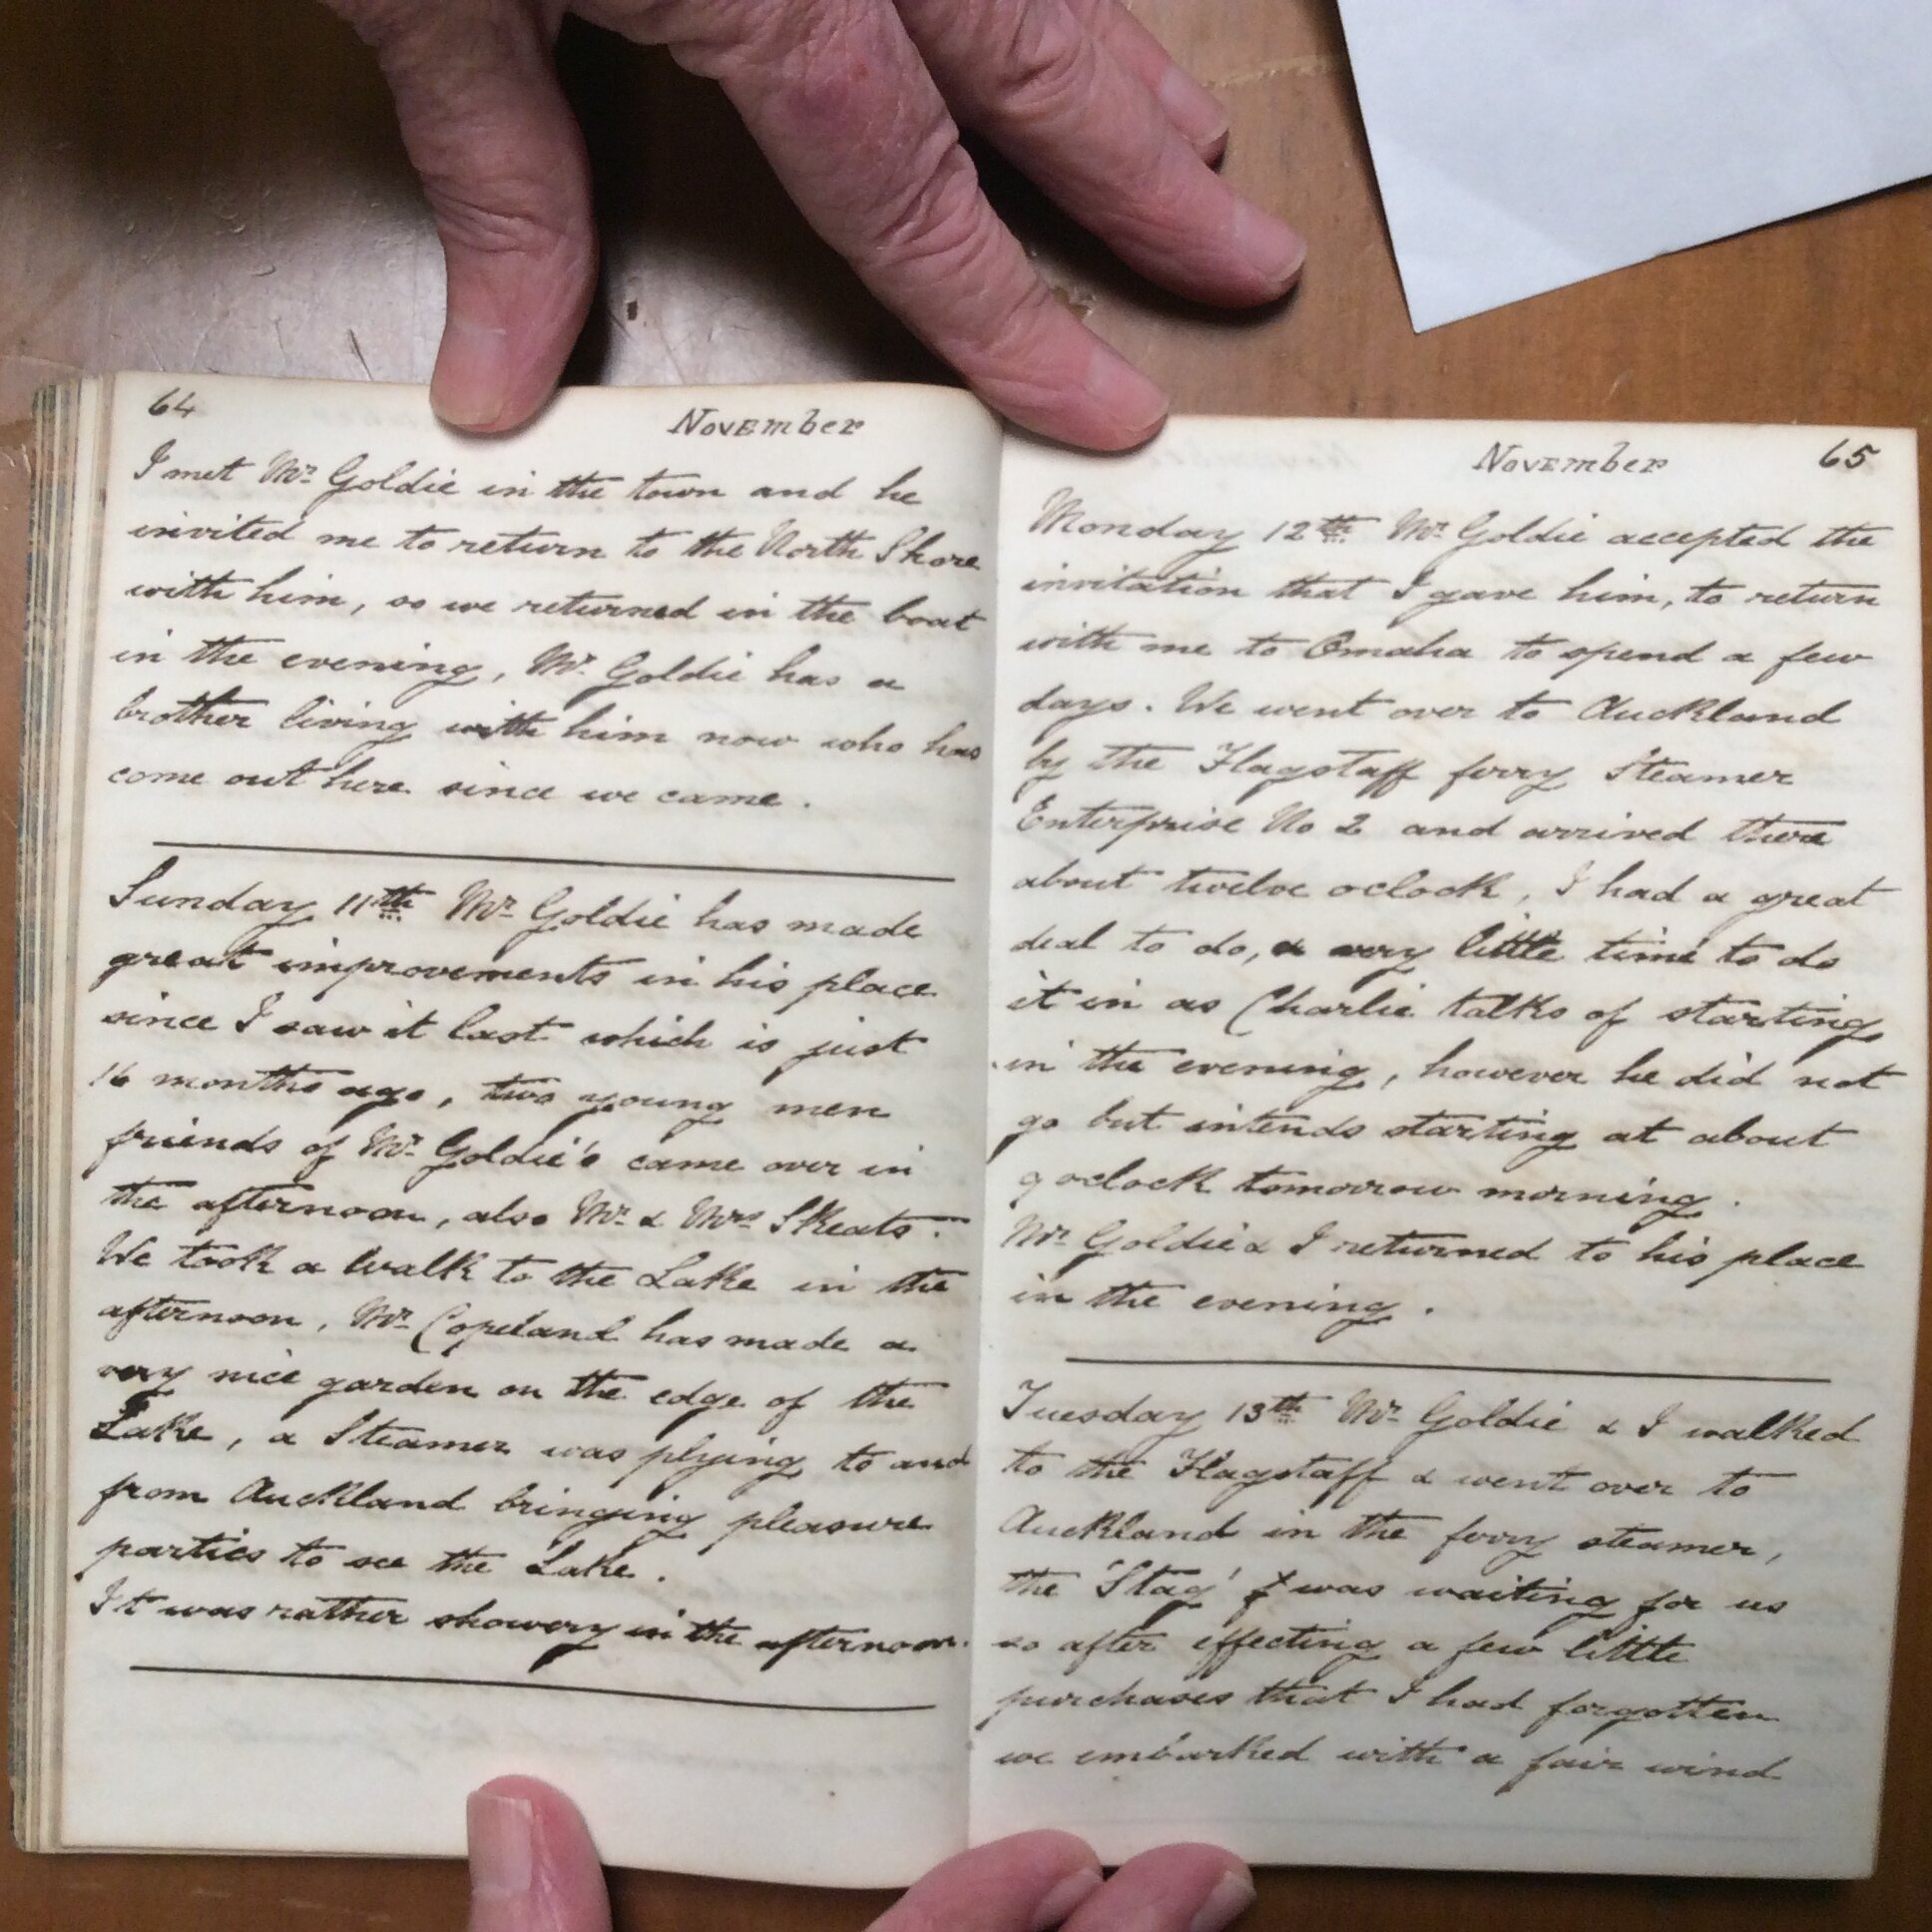 64
November
I met Mr Goldie in the town and he
invited me to return to the North Shore
with him, so we returned in the boat
in the evening, Mr Goldie has a
brother living with him now who has
come out here since we came.
Sunday 11th Mr Goldie has made
great improvements in his place
since I saw it last which is just
16 months ago, two young men
friends of Mr Goldie's came over in
the afternoon, also Mr & Mrs Skeats.
We took a walk to the Lake in the
afternoon, Mr Copeland has made a
very nice garden on the edge of the
Lake, a Steamer was plying to and
from Auckland bringing pleasure
parties to see the Lake.
It was rather showery in the afternoon.
November
65
Monday 12th Mr Goldie accepted the
invitation that I gave him, to return
with me to Omaha to spend a few
days. We went over to Auckland
by the Flagstaff ferry Steamer
Enterprise No 2 and arrived there
about twelve oclock, I had a great
deal to do, & very little time to do
it in as Charlie talks of starting
in the evening, however he did not
go but intends starting at about
9 oclock tomorrow morning.
Mr Goldie & I returned to his place
in the evening.
Tuesday 13th Mr Goldie & I walked
to the Flagstaff & went over to
Auckland in the ferry steamer,
the 'Stag' was waiting for us
so after effecting a few little
purchases that I had forgotten
we embarked with a fair wind